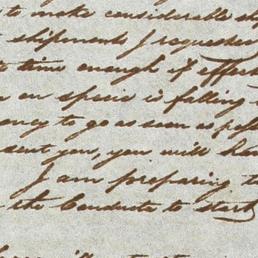 to make considerable
shipments I requested
time enough if effort
on specie is falling
to go as soon as
sent you, you will
I am preparing to
the Conducta to start